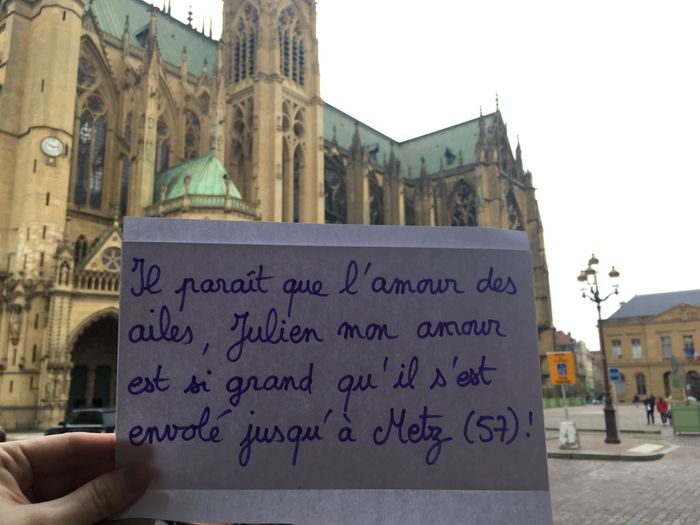 Il paraît que l'amour des
ailes, Julien mon amour
est si grand qu'il s'est
envolé jusqu'à Metz (57) !